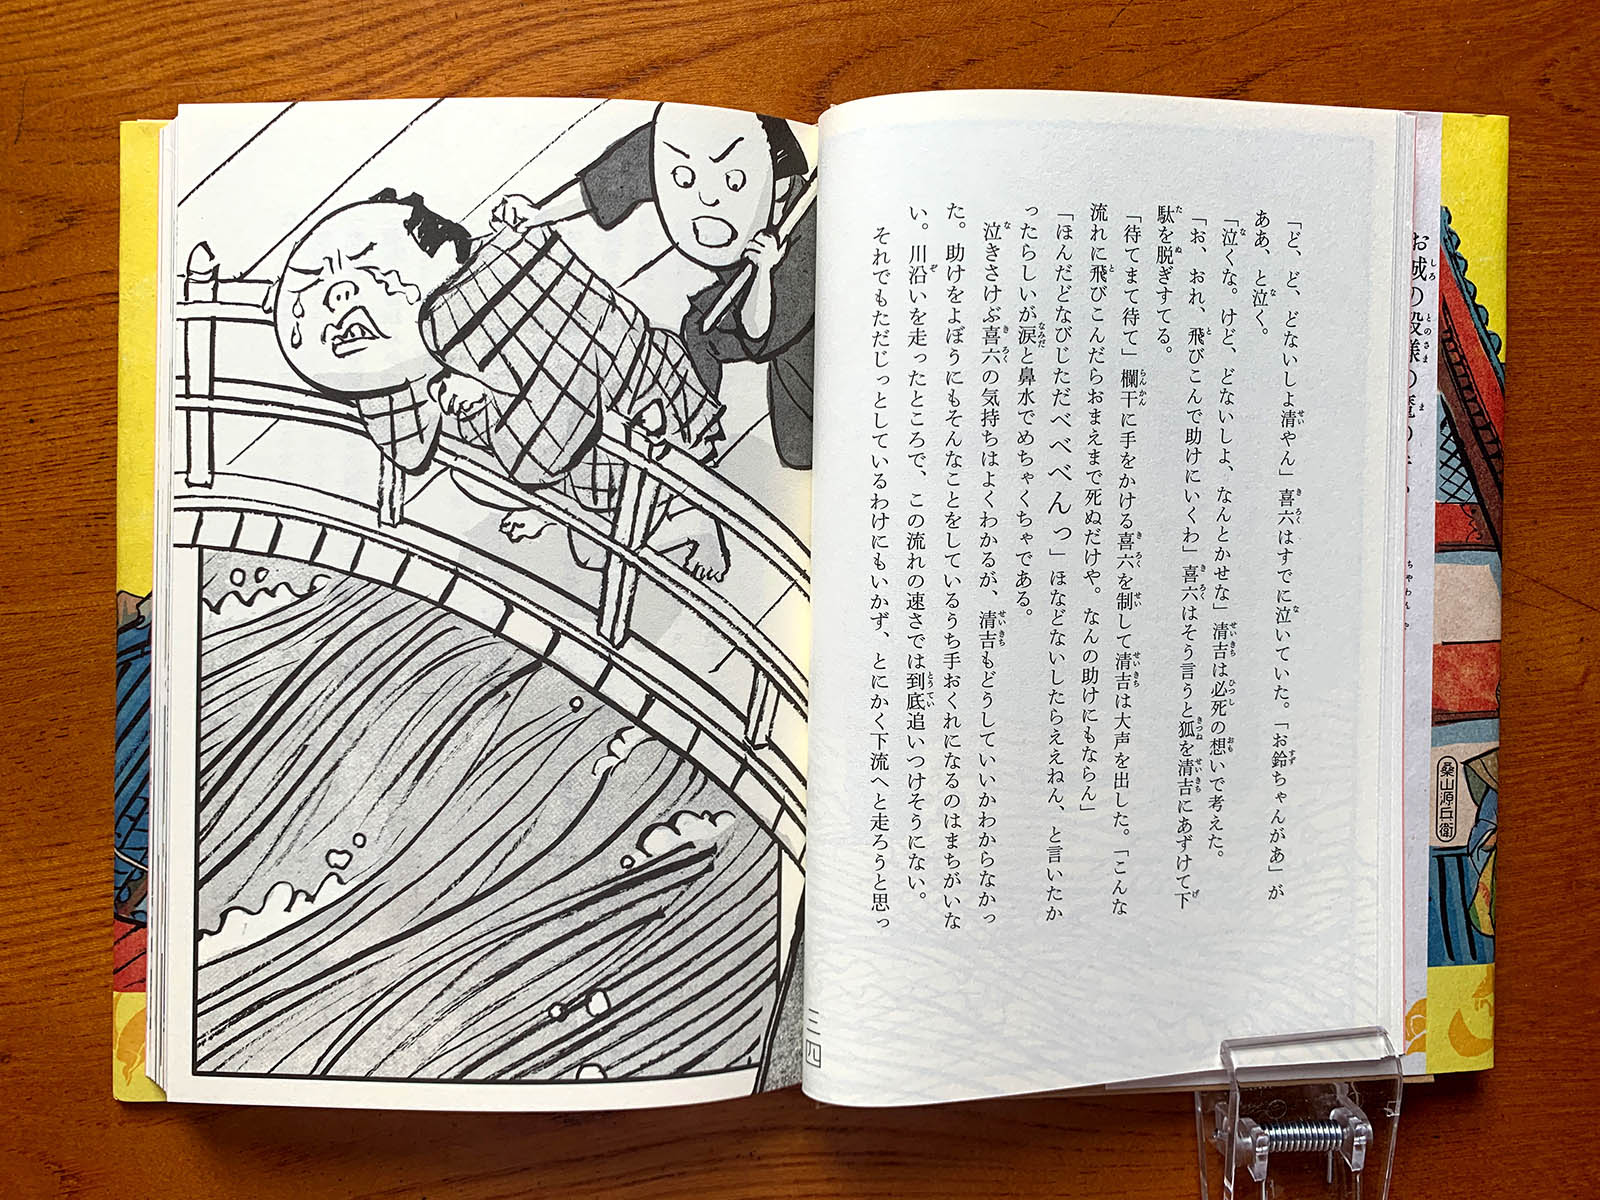 「ど、ど、どないしよ清やん」喜六はすでに泣いていた。「お鈴ちゃんがあ」が
ああ、と泣く。
「泣くな。けど、どないしよ、なんとかせな」清吉は必死の想いで考えた。
「お、おれ、飛びこんで助けにいくわ」喜六はそう言うと狐を清吉にあずけて下
駄を脱ぎすてる。
「待てまて待て」欄干に手をかける喜六を制して清吉は大声を出した。「こんな
流れに飛びこんだらおまえまで死ぬだけや。なんの助けにもならん」
「ほんだどなびじただべべべんっ」ほなどないしたらええねん、と言いたか
ったらしいが涙と鼻水でめちゃくちゃである。
泣きさけぶ喜六の気持ちはよくわかるが、清吉もどうしていいかわからなかっ
た。助けをよぼうにもそんなことをしているうち手おくれになるのはまちがいな
い。川沿いを走ったところで、この流れの速さでは到底追いつけそうにない。
それでもただじっとしているわけにもいかず、とにかく下流へと走ろうと思っ
三四
お城の殿様の魔の
桑山源兵衛